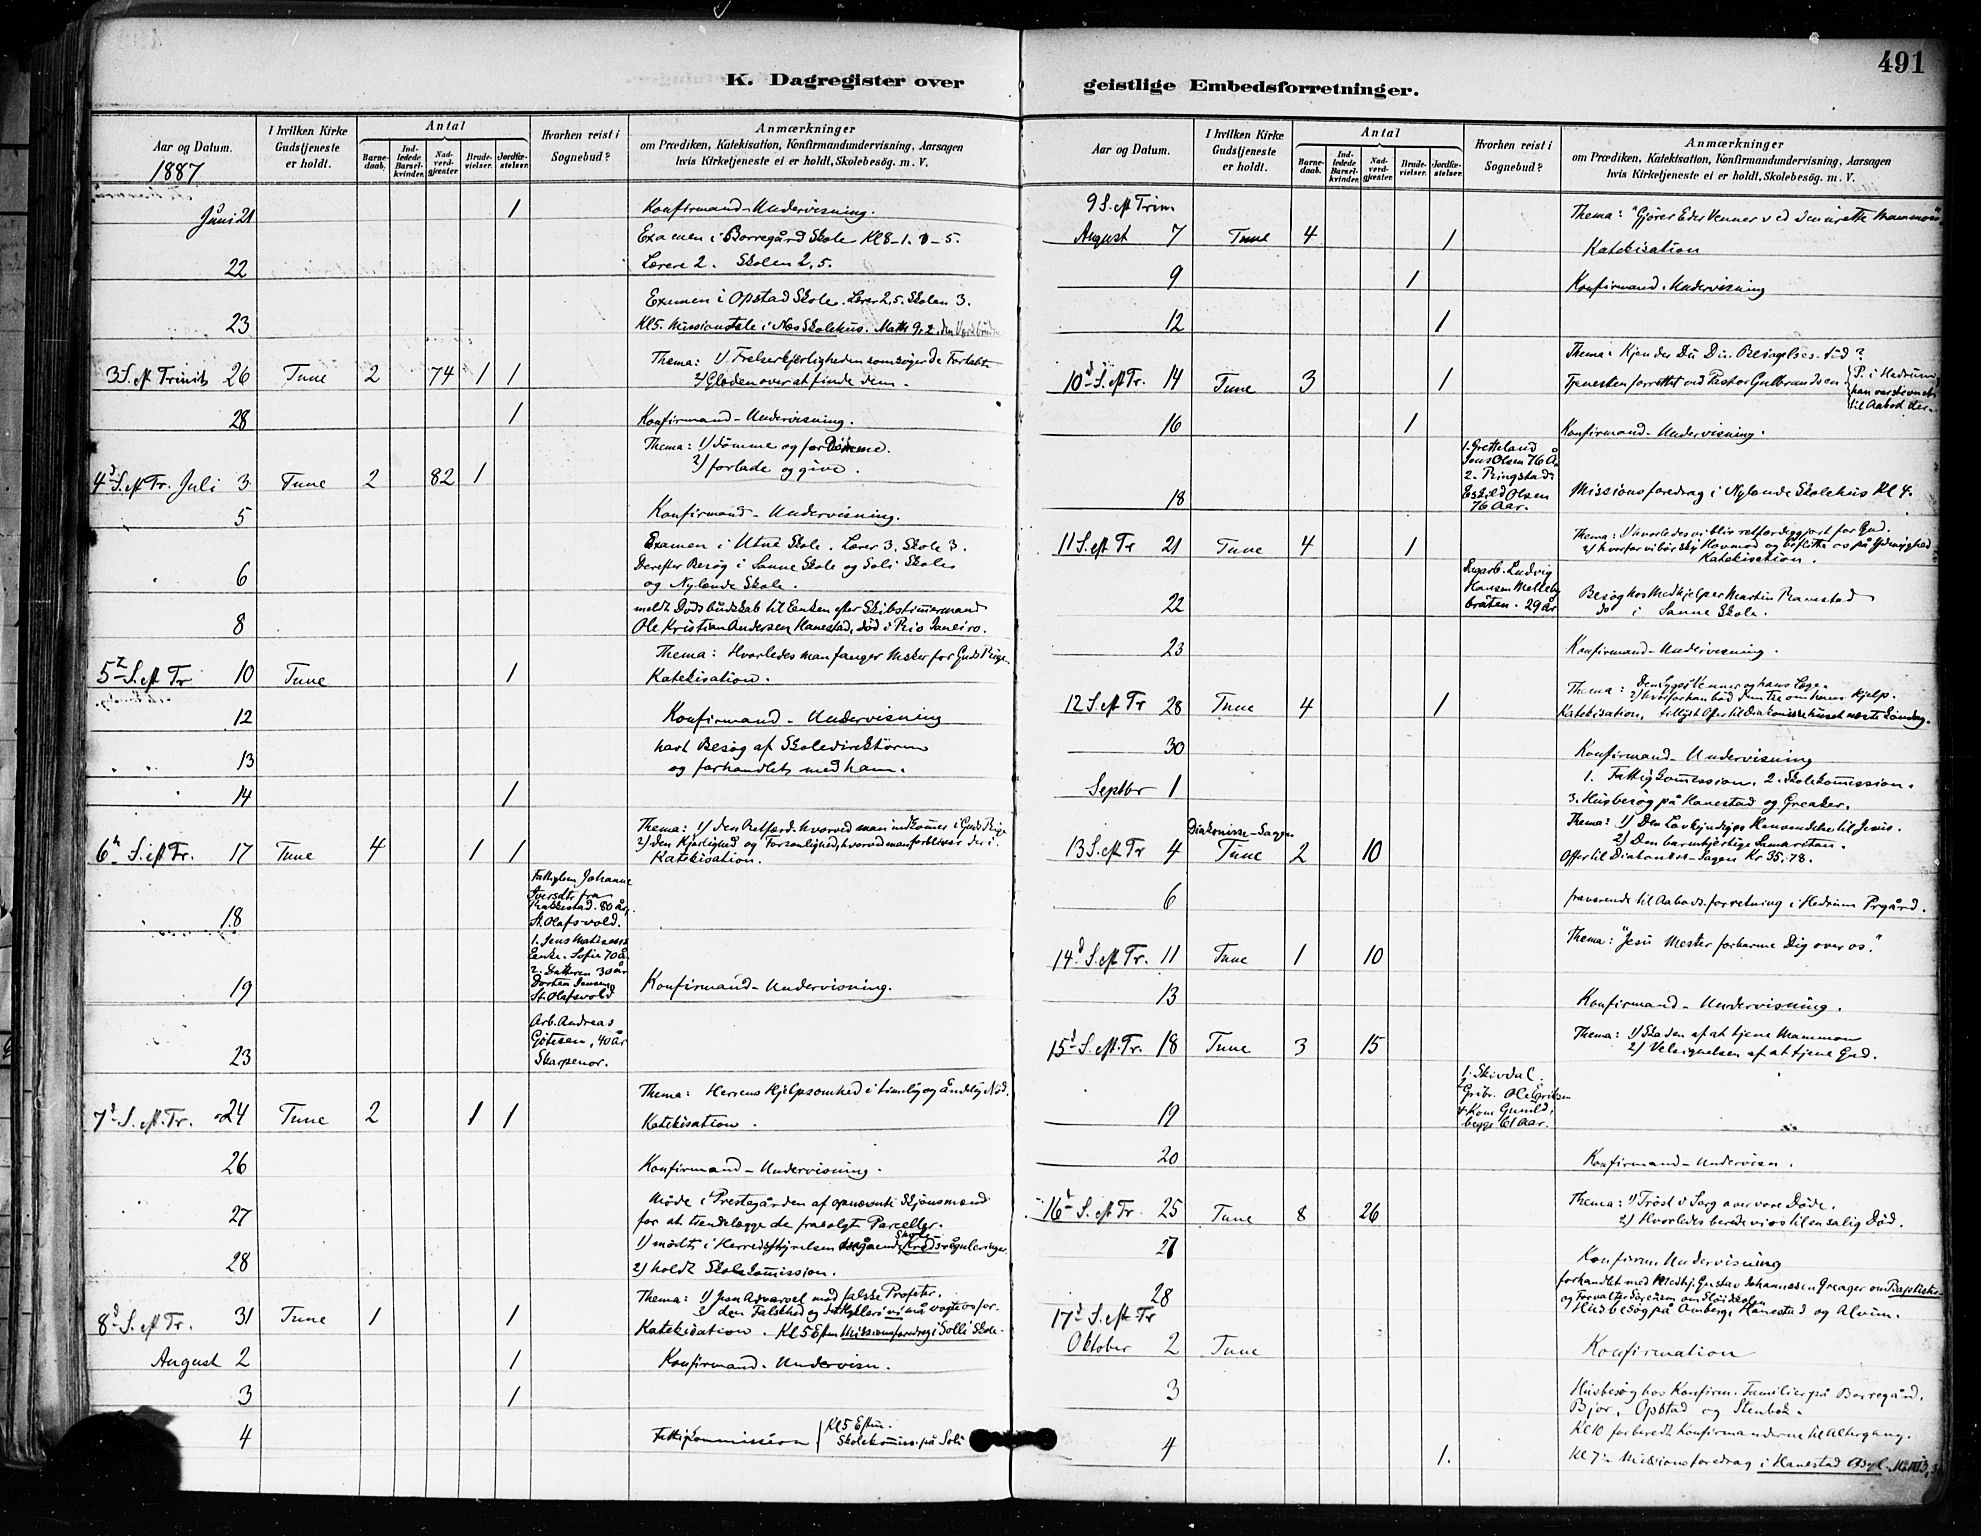 K. Dagregister over
Aar og Datum.
1887
I hvilken Kirke Gudstjeneste er holdt.
Antal
Barnedaab.
Indledede Barselkvinder.
Nadverdgjæster
Brudevielser.
Jordfæstelser.
Hvorhen reist i Sognebud?
Anmærkninger
om Prædiken, Katekisation, Konfirmandundervisning, Aarsagen
hvis Kirketjeneste ei er holdt, Skolebesøg. m. V.
Juni 21 1 Konfirmand-Undervisning.
Examen i Borregård Skole Kl 8-1.
22 Lærere 2. Skolen 2,5.
Examen i Opstad Skole. Lærer 2,5. Skolen 3.
23 Kl 5. Missionstale i Næs Skolehus. Math 9,2.
Thema: 1) Frelserkjerligheden som søger de Fortabte
3 S. eft Trinit 26 Tune 2 74 1 1 2) Glæden over at finde dem.
28 1 Konfirmand-Undervisning.
Thema: 1) dømme og fordømme.
4d S. eft Tr. Juli 3 Tune 2 82 1 2) forlade og give.
5 Konfirmand-Undervisning.
Examen i Utne Skole. Lærer 3. Skole 3.
6 Derefter Besøg i Sanne Skole og Soli Skole
og Nylende Skole.
meldt Dødsbudskab til Enken efter Skibstimmermand
8 Ole Kristian Andersen Hanestad, død i Rio Janeiro.
Thema: Hvorledes man fanger Msker for Guds Rige.
5t S. eft Tr 10 Tune 1 Katekisation.
12 Konfirmand-Undervisning
havt Besøg af Skoledirektøren
13 og forhandlet med ham.
14 1
Thema: 1) den Retfærd. hvorved man indkommer i Guds Rige
2) den Kjerlighed og Forsonlighed, hvorved man forbliver der i.
6t S. eft Tr. 17 Tune 4 1 1 Katekisation.
Fattiglem Johanne
Iversdtr fra
Rakkestad. 80 år,
18 St. Olafsvold.
1. Jens Mathisens
Enke. Sofie 70 år
2. Datteren 30 år
Dorthea Jensen
19 St. Olafsvold Konfirmand-Undervisning.
Arb. Andreas
Götesen, 40 år
23 Skarpenor.
Thema: Herrens Hjelpsomhed i timelig og åndelig Nød.
7d S. eft. Tr. 24 Tune 2 1 1 Katekisation.
26 Konfirmand-Undervisning.
Møde i Prestegården af opnævnte Skjønsmænd
27 for at trendelægge de frasolgte Parceller.
1) mødte i Herredsstyrelsen Skole Kredsreguleringer.
28 2) holdt Skolekommission.
Thema: 1) Jesu Advarsel mod falske Profeter.
2) den Falskhed og det Hykleri vi må vogte os for.
8d S. eft Tr. 31 Tune 1 1 Katekisation. Kl 5 Eftm Missionsforedrag i Solli Skole.
August 2 1 Konfirmand-Undervisn.
3 1
4 Fattigkommission Kl 5 Eftm.
Skolekommiss. på Soli
geistlige Embedsforretninger.
491
Aar og Datum.
I hvilken Kirke Gudstjeneste er holdt.
Antal
Barnedaab.
Indledede Barselkvinder.
Nadverdgjæster.
Brudevielser.
Jordfæstelser.
Hvorhen reist i Sognebud?
Anmærkninger
om Prædiken, Katekisation, Konfirmandundervisning, Aarsagen
hvis Kirketjeneste ei er holdt, Skolebesøg. m. V.
9 S. eft Trin. Thema: "Gjører Eder Venner ved den urette Mammon"
August 7 Tune 4 1 Katekisation
9 1 Konfirmand-Undervisning
12 1
Thema: Kjender Du Din Besøgelses-tid?
10d S. eft Tr. 14 Tune 3 1 Tjenesten forrettet ved Pastor Gulbrandsen P. i Hedrum,
han var stevnet
til Aabod der.
16 1 Konfirmand-Undervisning.
1. Gretteland
Jens Olsen 76 År
2. Ringstad
Eskild Olsen
18 76 Aar. Missionsforedrag i Nylende Skolehus Kl 4.
Thema: 1) hvorledes vi blir retfærdiggjort for Gud.
11 S. eft Tr 21 Tune 4 1 2) hvorfor vi bør sky Hovmod og beflitte os på Ydmyghed
Katekisation.
Dagarb. Ludvig
Hansen Melleby
22 bråten. 29 år Besøg hos Medhjelper Martin Ramstad
do i Sanne Skole.
23 Konfirmand-Undervisning.
Thema: Den Syges Venner og hans Læge.
2) hvorfor han bad dem tie om hans Hjelp.
12 S. eft Tr 28 Tune 4 1 Katekisation, tillyst Offer til Diakonissehuset næste Søndag.
30 Konfirmand-Undervisning
Septbr 1 1. Fattigkommission. 2. Skolekommission.
3. Husbesøg på Hanestad og Greaker.
Diakonisse-Sagen Thema: 1) Den Lovkyndiges Henvendelse til Jesus.
2) Den barmhjertige Samaritan.
13 S. eft Tr 4 Tune 2 10 Offer til Diakoness-Sagen Kr 35.78.
6 fraværende til Aabodsforretning i Hedrum Prgård.
Thema: "Jesu Mester forbarme Dig over os."
14d S. eft Tr. 11 Tune 1 10
13 Konfirmand-Undervisning.
Thema: 1) Skaden af at tjene Mammon
15d S. eft. Tr. 18 Tune 3 15 2) Velsignelsen af at tjene Gud.
1. Skivdal.
2 Grdbr. Ole Eriksen
& Kone Gunild,
19 begge 61 Aar.
20 Konfirmand-Undervisn.
Thema: 1) Trøst i Sorg over vore Døde.
16d S. eft Tr. 25 Tune 8 26 2) Hvorledes berede vi os til en salig Død.
27 Konfirm Undervisning
forhandlet med Medhj. Gustav Johannessen Greager om Baptister
28 og Forvalter Sørensen om Sløidskolen
Husbesøg på Amberg, Hanestad og Alvim.
17d S. eft Tr
Oktober 2 Tune Konfirmation
3 Husbesøg hos Konfirm. Familier på Borregård.
Bjor, Opstad og Stenbek.
Kl 10 forberedt Konfirmanderne til Altergang.
4 1. Kl 7 Missionsforedrag i Hanestad Asyl.